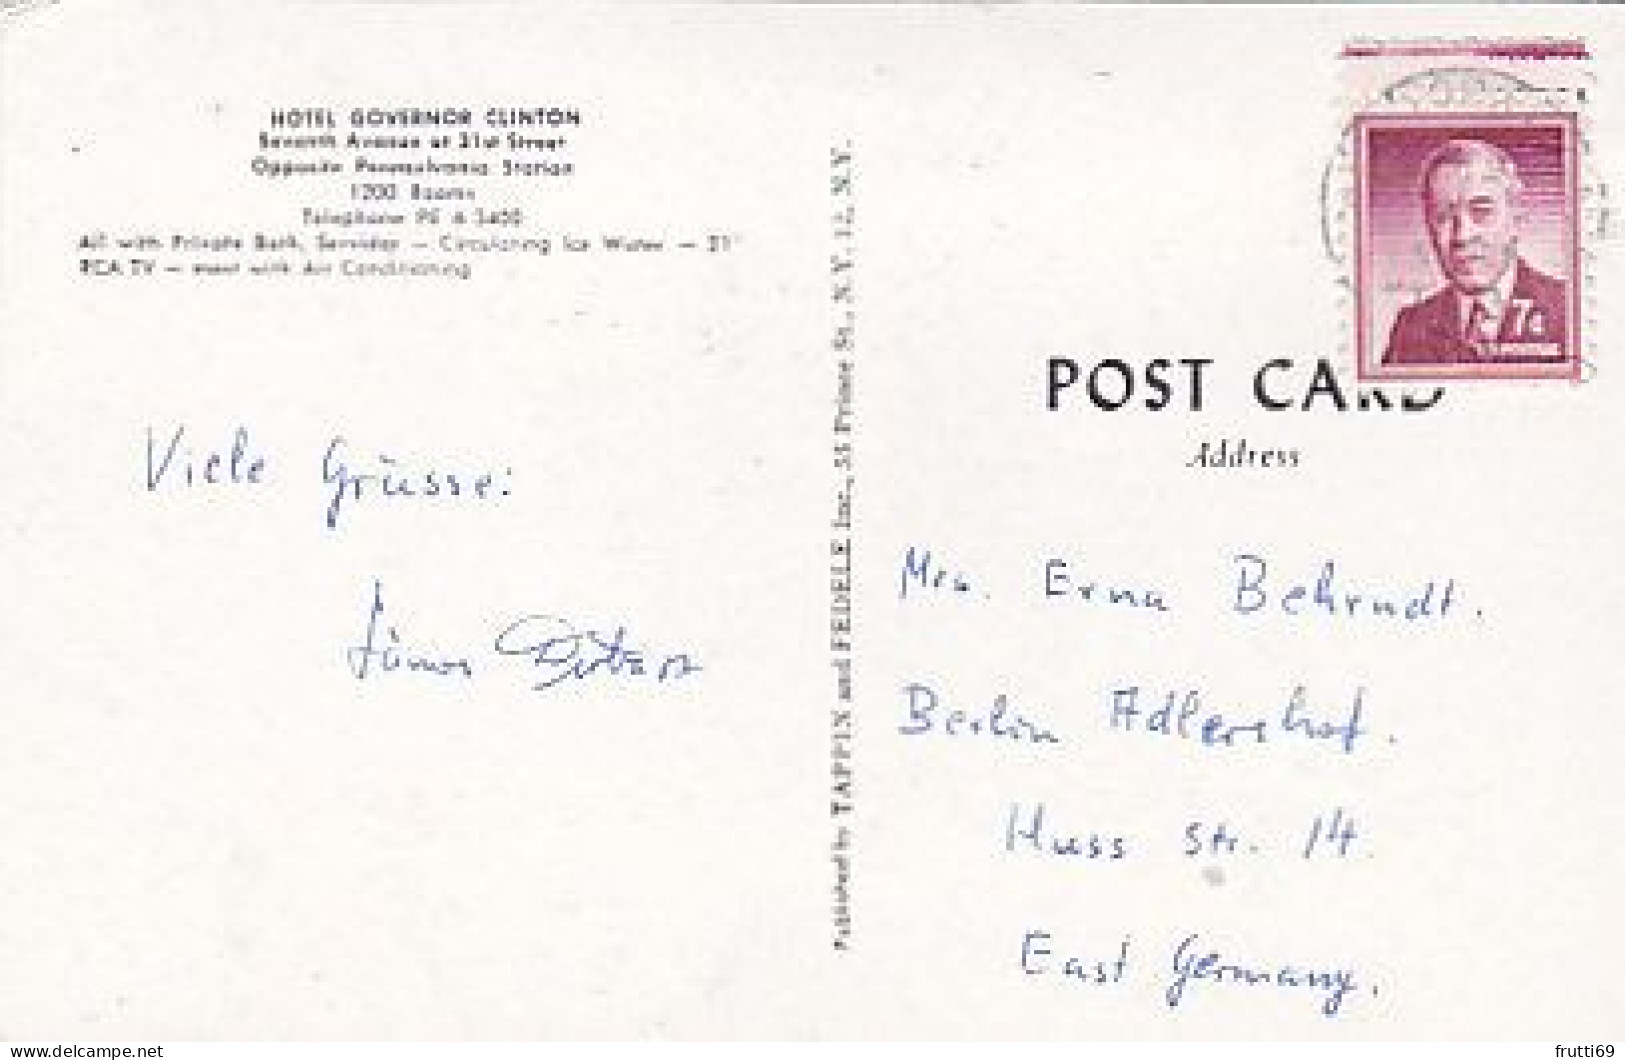 HOTEL GOVERNOR CLINTON
Seventh Avenue at 31st Street
Opposite Pennsylvania Station
1200 Rooms
Telephone PE 6 3400
All with Private Bath, Servidor — Circulating Ice Water — 21"
RCA TV — most with Air Conditioning
Viele Grüsse:
Published by TAPPIN and FEDELE Inc., 55 Prince St., N.Y. 12, N.Y.
7¢
POST CARD
Address
Mrs. Erna Behrndt.
Berlin Adlershof.
Huss str. 14.
East Germany.
frutti69
www.delcampe.net